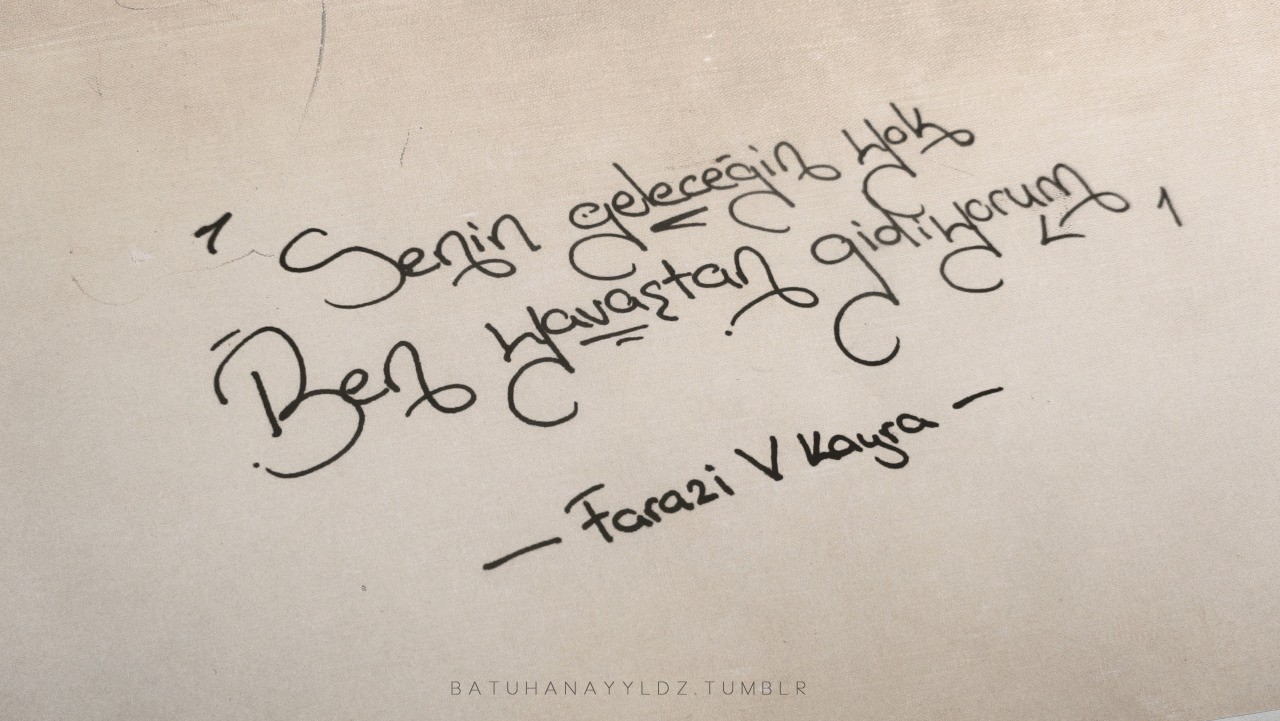 ' Senin geleceğin yok
Ben yavaştan gidiyorum '
— Farazi V Kayra —
BATUHANAYYLDZ.TUMBLR